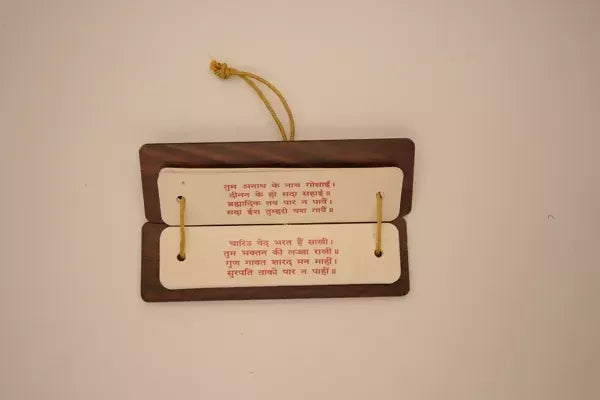 तुम अनाथ के नाथ गोसाईं।
दीनन के हो सदा सहाई॥
ब्रह्मादिक तव पार न पावैं।
सदा ईश तुम्हरो यश गावैं॥
चारिउ वेद भरत हैं साखी।
तुम भक्तन की लज्जा राखी॥
गुण गावत शारद मन माहीं।
सुरपति ताको पार न पाहीं॥